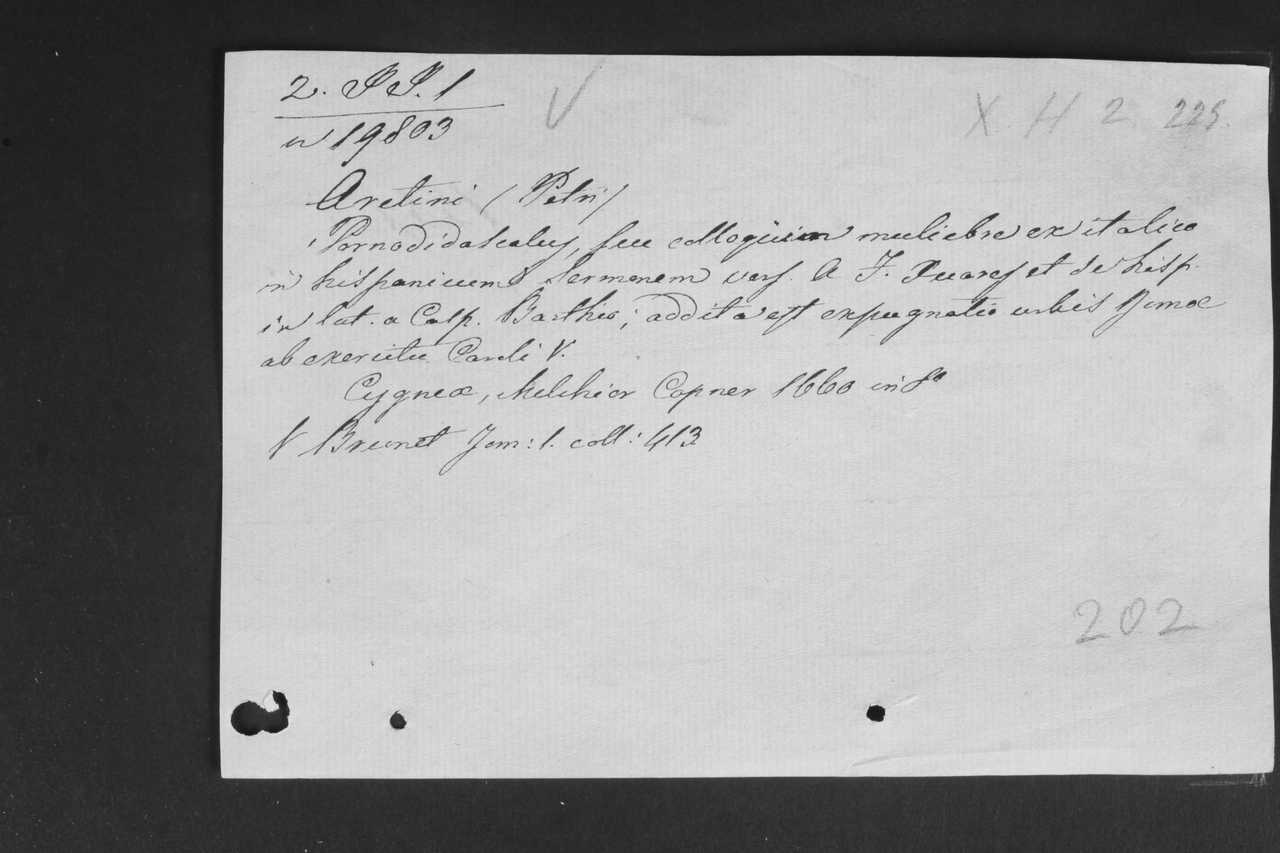 2. PP. 1
n 19803
V
X H 2 225.
Aretini (Petri)
Pornodidascalus, seu colloquium muliebre ex italico
in hispanicum sermonem vers. a F. Xuares et de hisp.
in lat. a Casp. Barthio; addita est expugnatio urbis Romae
ab exercitu Caroli V.
Cygneae, Melchior Copner 1660 in 8º
V Brunet Tom: 1. coll: 413
202